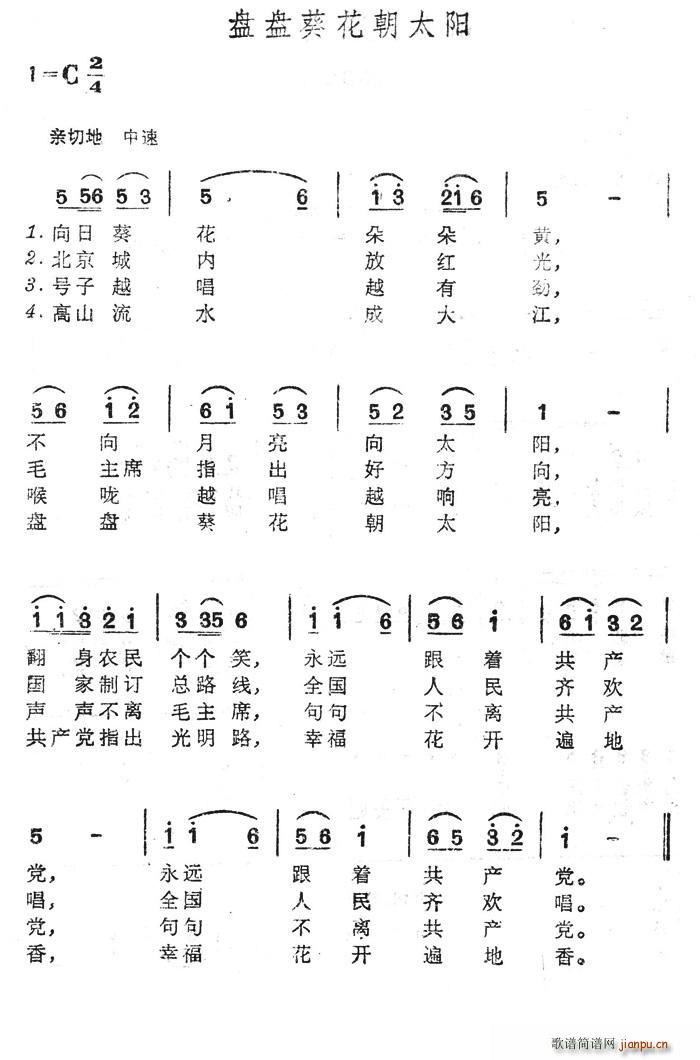 盘盘葵花朝太阳
1=C 2/4
亲切地 中速
5 56 5 3 | 5. 6 | 1 3 216 | 5 - |
1.向日葵花朵朵黄,
2.北京城内放红光,
3.号子越唱越有劲,
4.高山流水成大江,
5 6 1 2 | 6 1 5 3 | 5 2 3 5 | 1 - |
不向月亮向太阳,
毛主席指出好方向,
喉咙越唱越响亮,
盘盘葵花朝太阳,
1 1 3 2 1 | 3 35 6 | 1 1 6 | 5 6 1 | 6 1 3 2 |
翻身农民个个笑,永远跟着共产
国家制订总路线,全国人民齐欢
声声不离毛主席,句句不离共产
共产党指出光明路,幸福花开遍地
5 - | 1 1 6 | 5 6 1 | 6 5 3 2 | 1 - ‖
党,永远跟着共产党。
唱,全国人民齐欢唱。
党,句句不离共产党。
香,幸福花开遍地香。
歌谱简谱网
jianpu.cn